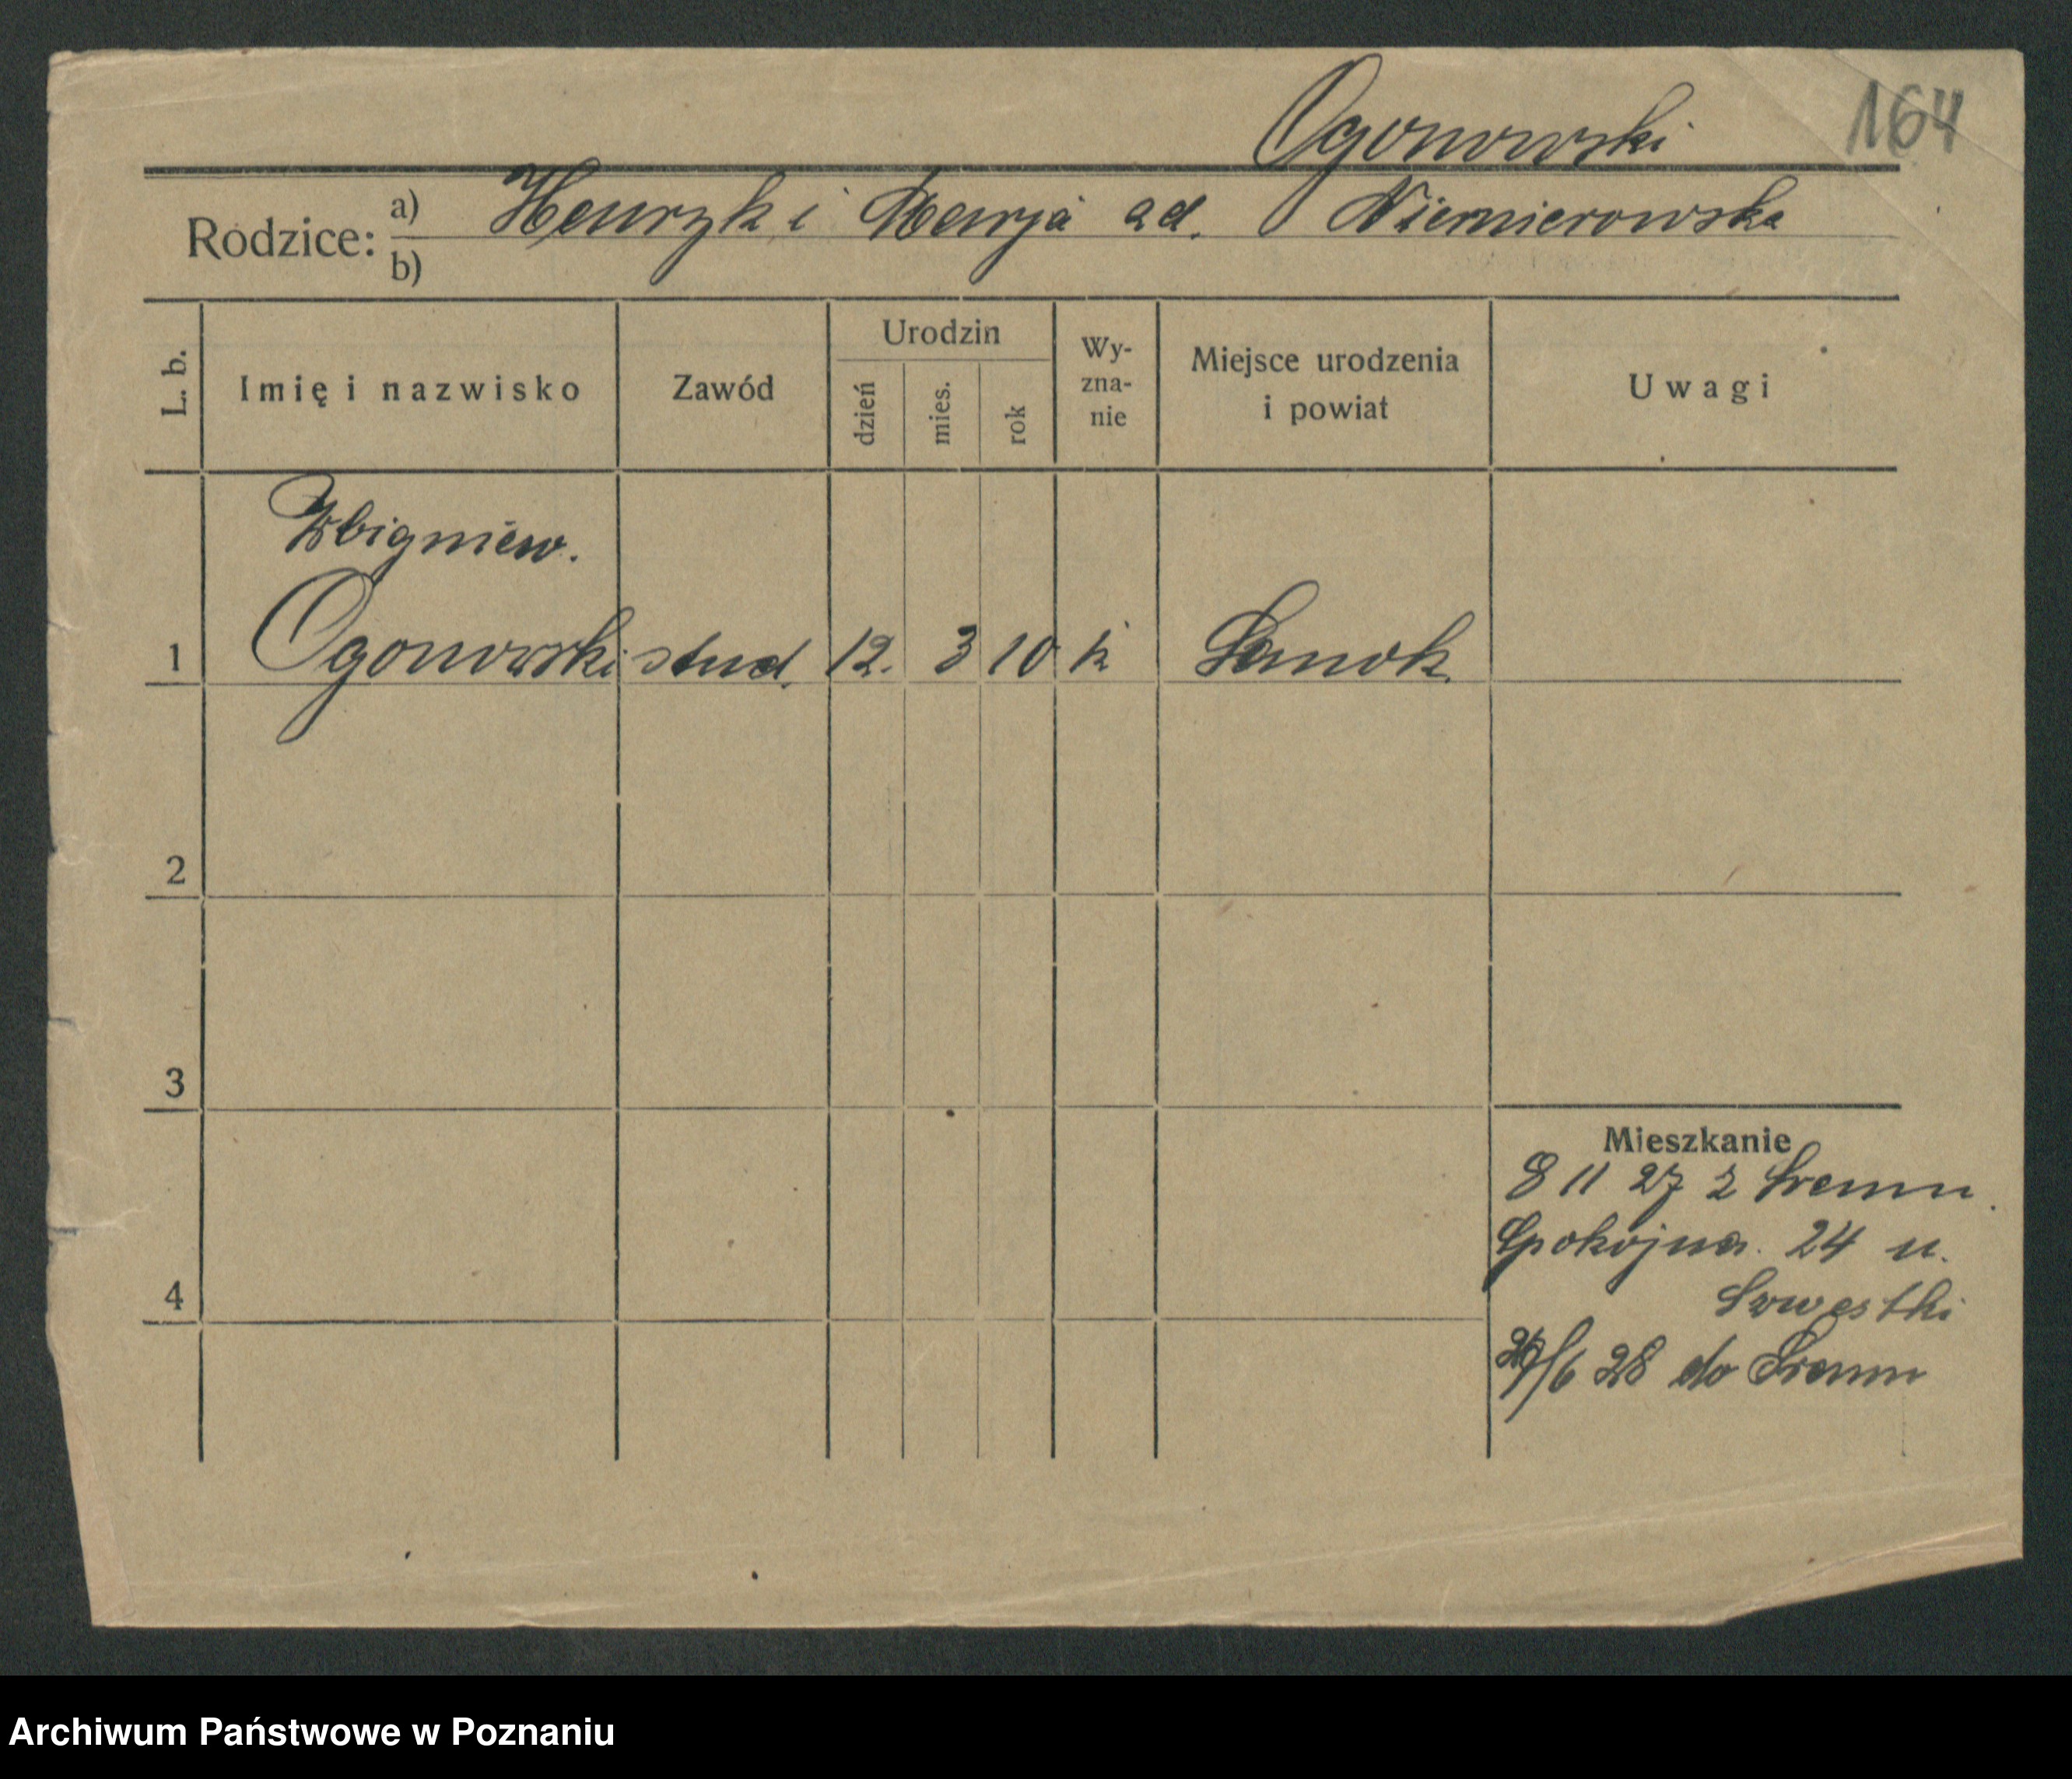 Ogonowski 164
Rodzice: a) Henryk i Marja ad. Niemierowska
b)
L. b. Imię i nazwisko Zawód Urodzin dzień mies. rok Wy-zna-nie Miejsce urodzenia i powiat Uwagi
Zbigniew.
1 Ogonowski stud. 12. 3 10 k Sanok
2
3
Mieszkanie
8 11 27 z Śremu
Spokojna 24 u.
4
/6 28 do Śremu
Archiwum Państwowe w Poznaniu